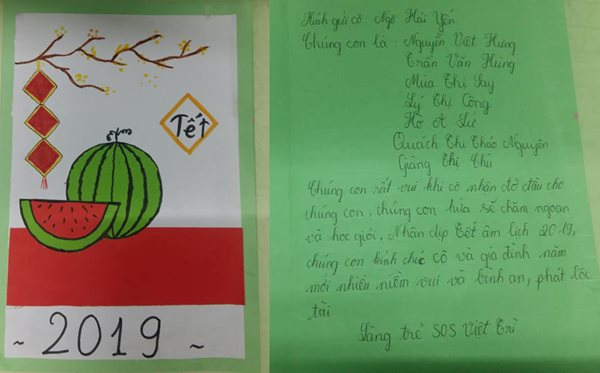 Tết
~ 2019 ~
Kính gửi cô: Ngô Hải Yến
Chúng con là: Nguyễn Việt Hưng
Trần Văn Hùng
Mùa Thị Say
Lý Thị Công
Hồ A Lử
Quách Thị Thảo Nguyên
Giàng Thị Chú
Chúng con rất vui khi cô nhận đỡ đầu cho
chúng con, chúng con hứa sẽ chăm ngoan
và học giỏi, Nhân dịp Tết âm lịch 2019,
chúng con kính chúc cô và gia đình năm
mới nhiều niềm vui và bình an, phát lộc
tài
Làng trẻ SOS Việt Trì